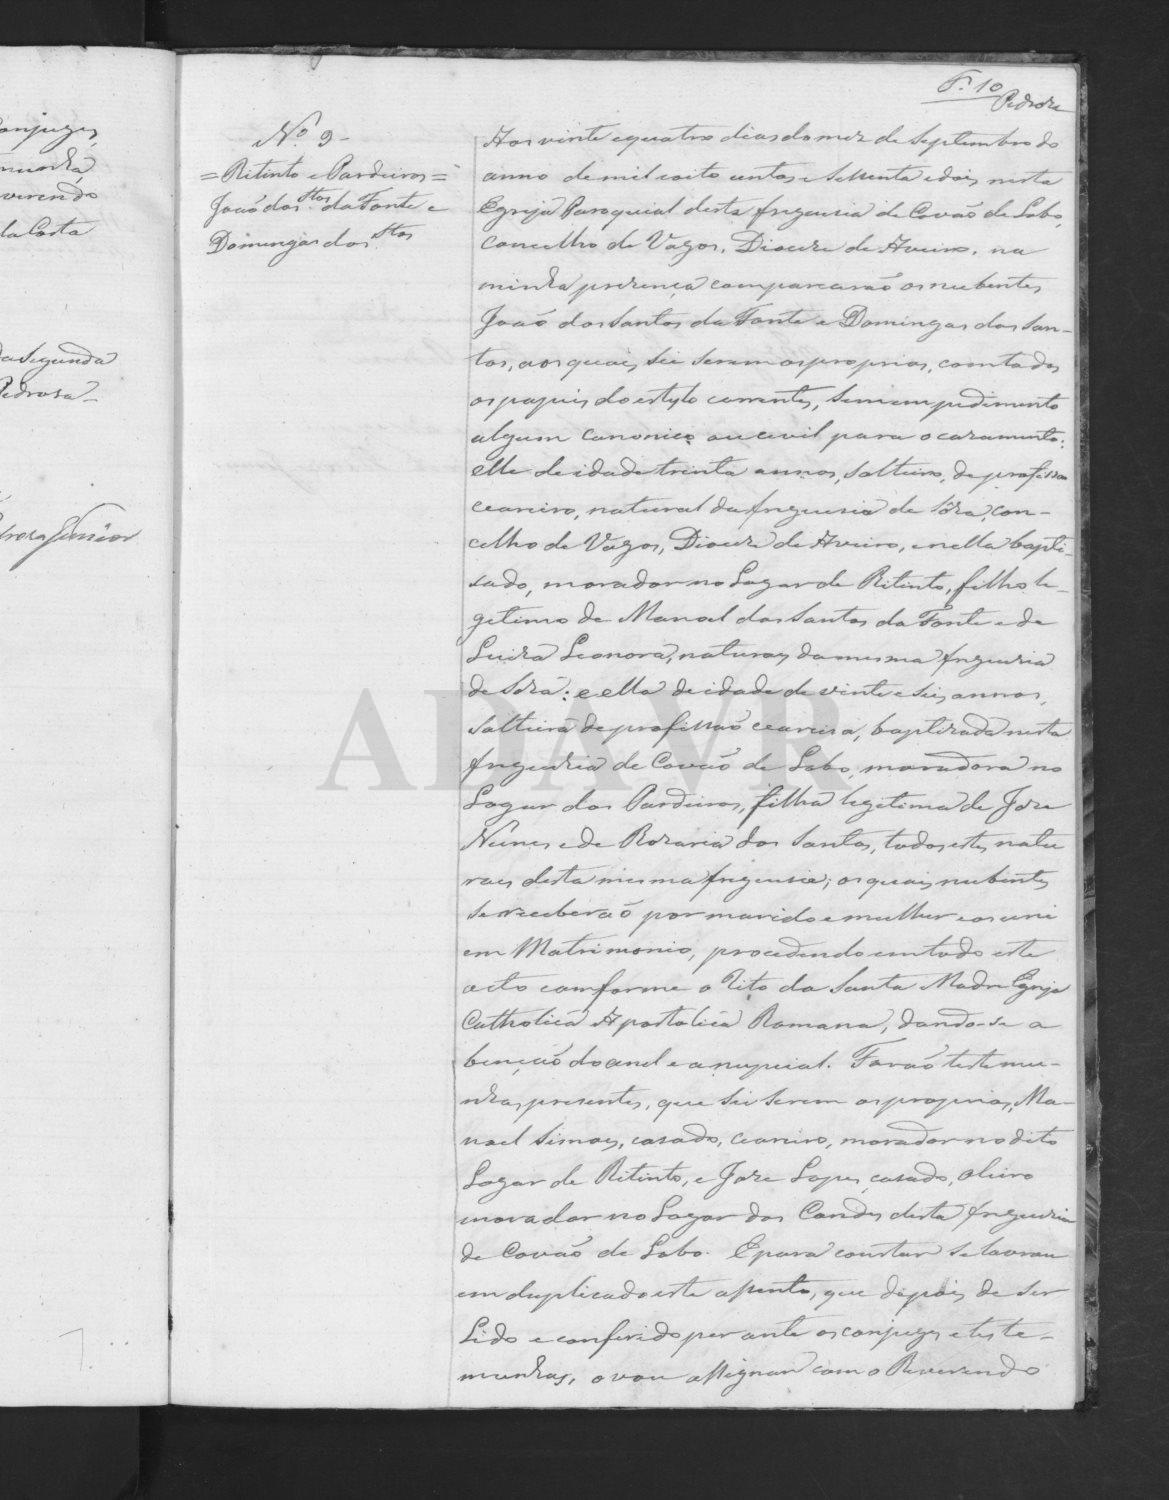 onjuges,
munha
verendo
la Costa
da Segunda
Pedrosa -
drosa Junior
F. 10
Pedroza
Nº 9 -
= Ritinto e Pardeiros =
João dos Stos da Fonte e
Domingas dos Stos
Aos vinte e quatro dias do mez de Septembro do
anno de mil oito centos e sessenta e dois nesta
Egreja Paroquial desta freguesia de Covão de Lobo,
concelho de Vagos, Diocese de Aveiro, na
minha presença comparecerão os nubentes
João dos Santos da Fonte e Domingas dos San-
tos, aos quaes sei serem os proprios, com todos
os papeis do estylo correntes, sem empedimento
algum canonico ou civil para o casamento:
elle de idade trinta annos, solteiro, de profissão
ceareiro, natural da freguesia de Sóza, con-
celho de Vagos, Diocese de Aveiro, e nella bapti-
sado, morador no Lugar de Ritinto, filho le-
getimo de Manoel dos Santos da Fonte e de
Luiza Leonora, naturaes da mesma freguesia
de Sóza: e ella de idade de vinte e seis annos,
solteira de profissão ceareira, baptizada nesta
freguezia de Covão de Lobo, moradora no
Logar dos Pardeiros, filha legetima de Joze
Nunes e de Rozaria dos Santos, todos estes natu
raes desta mesma freguesia; os quaes nubentes
se receberão por marido e mulher e os uni
em Matrimonio, procedendo em todo este
acto comforme o Rito da Santa Madre Egreja
Catholica Apostolica Romana, dando-se a
benção do anel e a nupcial. Forão testemu-
nhas presentes, que sei serem os proprios, Ma-
noel Simoes, casado, ceareiro, morador no dito
Logar de Ritinto, e Joze Lopes, casado, oleiro
morador no Lugar dos Condes desta freguezia
de Covão de Lobo. E para constar se lavrou
em duplicado este assento, que depois de ser
Lido e conferido perante os conjuges e teste-
munhas, o vou assignar com o Reverendo
ADAVR